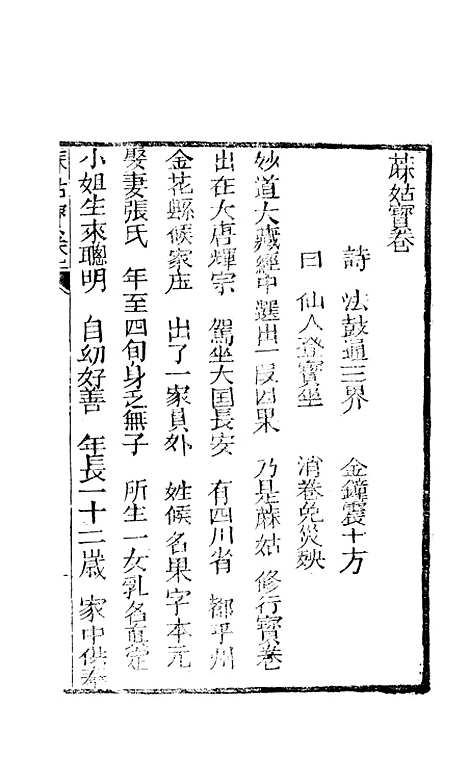 蔴姑寶卷
詩 法鼓通三界 金鐘震十方
曰 仙人登寶坐 消卷免災殃
妙道大藏經中選出一段因果 乃是蔴姑 修行寶卷
出在大唐輝宗 駕坐大囯長安 有四川省 都平州
金花縣候家庄 出了一家員外 姓候名果字本元
娶妻張氏 年至四旬身乏無子 所生一女乳名直
小姐生來聰明 自幼好善 年長一十二歲 家中供奉